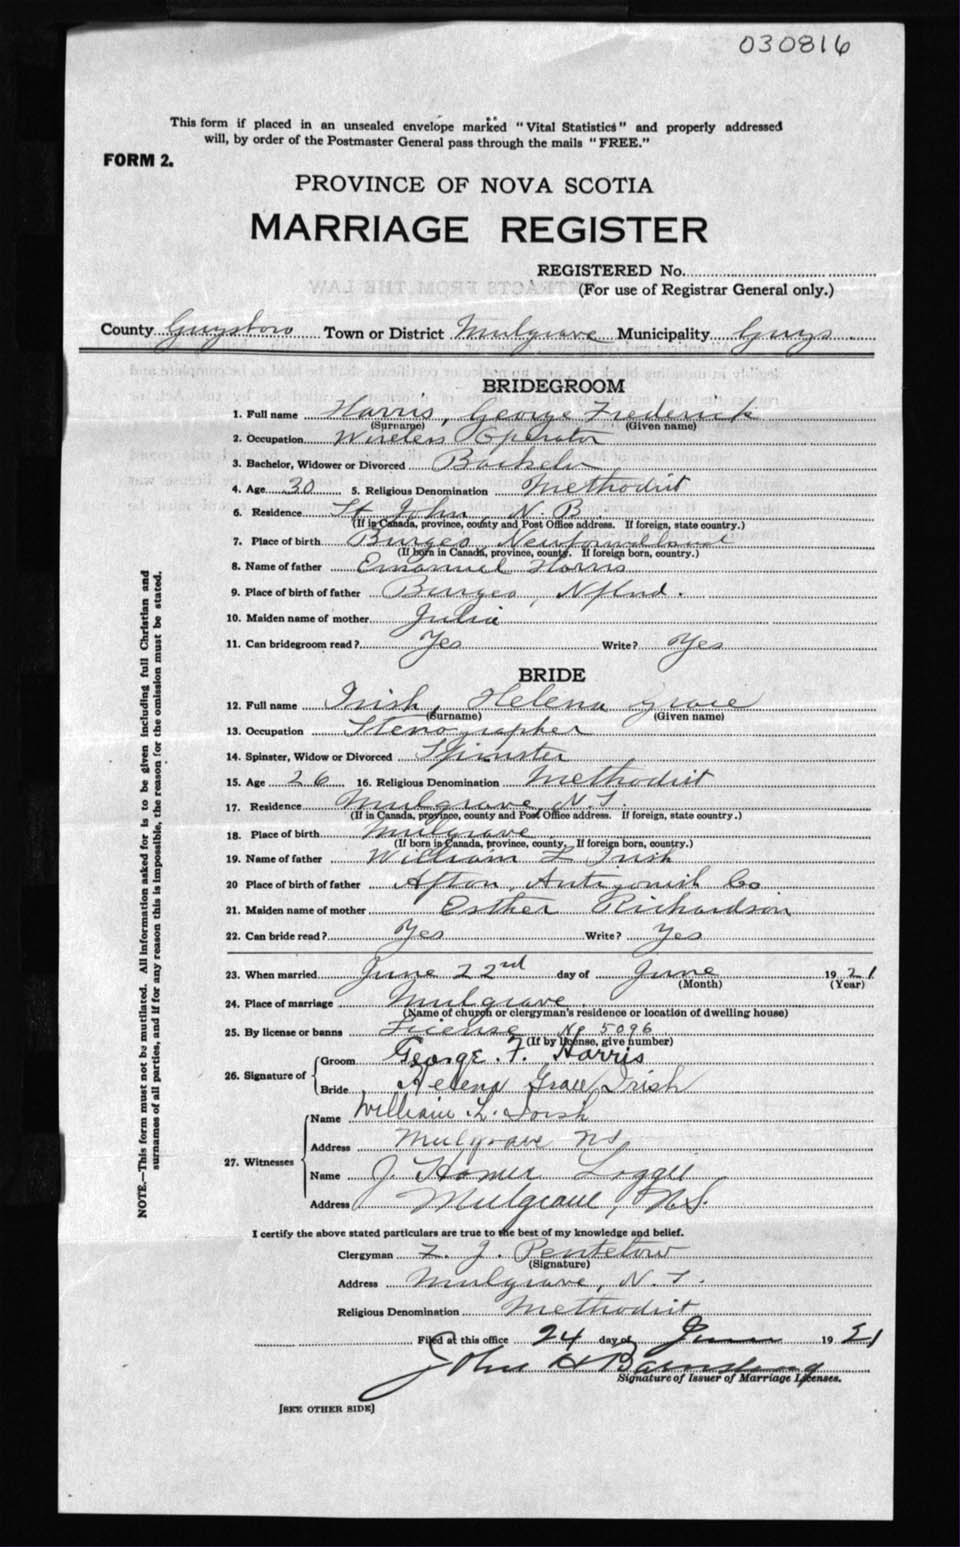 030816
This form if placed in an unsealed envelope marked "Vital Statistics" and properly addressed
will, by order of the Postmaster General pass through the mails "FREE."
FORM 2.
PROVINCE OF NOVA SCOTIA
MARRIAGE REGISTER
REGISTERED No.
(For use of Registrar General only.)
County Guysboro Town or District Mulgrave Municipality Guys
BRIDEGROOM
1. Full name Harris, George Frederick
(Surname) (Given name)
2. Occupation Wireless Operator
3. Bachelor, Widower or Divorced Bachelor
4. Age 30 5. Religious Denomination Methodist
6. Residence St John, N. B.
(If in Canada, province, county and Post Office address. If foreign, state country.)
7. Place of birth Burgeo Newfoundland
(If born in Canada, province, county. If foreign born, country.)
8. Name of father Emanuel Harris
9. Place of birth of father Burgeo, Nflnd.
10. Maiden name of mother Julia
11. Can bridegroom read? Yes Write? Yes
BRIDE
12. Full name Irish, Helena Grace
(Surname) (Given name)
13. Occupation Stenographer
14. Spinster, Widow or Divorced Spinster
15. Age 26 16. Religious Denomination Methodist
17. Residence Mulgrave, N.S.
(If in Canada, province, county and Post Office address. If foreign, state country.)
18. Place of birth Mulgrave
(If born in Canada, province, county. If foreign born, country.)
19. Name of father William L Irish
20 Place of birth of father Afton, Antigonish Co
21. Maiden name of mother Esther Richardson
22. Can bride read? Yes Write? Yes
23. When married June 22nd day of June 1921
(Month) (Year)
24. Place of marriage Mulgrave.
(Name of church or clergyman's residence or location of dwelling house)
25. By license or banns License No 5096
(If by license, give number)
26. Signature of
Groom George. F. Harris
Bride Helena Grace Irish
27. Witnesses
Name William L. Irish
Address Mulgrave NS
Name J. Homer Loggie
Address Mulgrave, N.S.
I certify the above stated particulars are true to the best of my knowledge and belief.
Clergyman J. Pentelow
(Signature)
Address Mulgrave, N. S.
Religious Denomination Methodist
Filed at this office 24 day of June 1921
John H
Signature of Issuer of Marriage Licenses.
[SEE OTHER SIDE]
NOTE.—This form must not be mutilated. All information asked for is to be given including full Christian and
surnames of all parties, and if for any reason this is impossible, the reason for the omission must be stated.